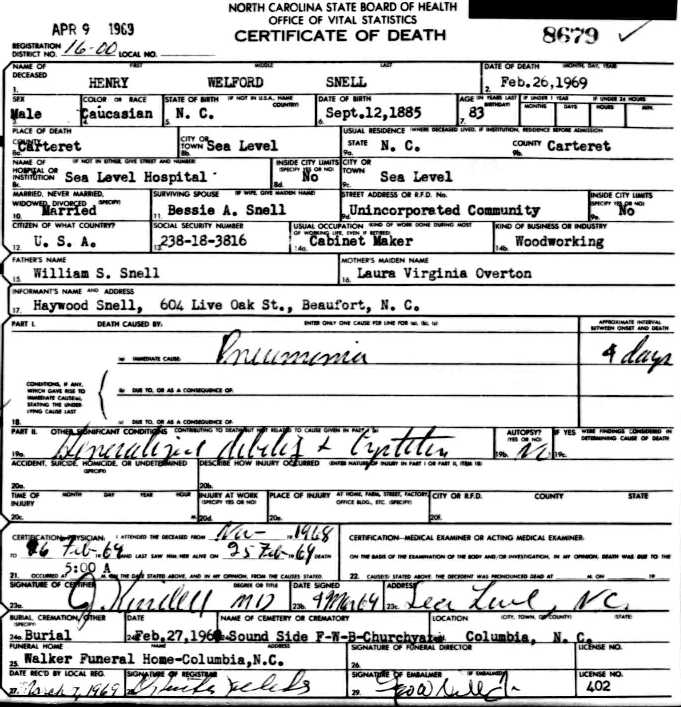 NORTH CAROLINA STATE BOARD OF HEALTH
OFFICE OF VITAL STATISTICS
CERTIFICATE OF DEATH
APR 9 1969
8679
REGISTRATION DISTRICT NO. 16-00 LOCAL NO.
NAME OF DECEASED FIRST MIDDLE LAST DATE OF DEATH (MONTH, DAY, YEAR)
1. HENRY WELFORD SNELL 2. Feb.26,1969
SEX COLOR OR RACE STATE OF BIRTH (IF NOT IN U.S.A., NAME COUNTRY) DATE OF BIRTH AGE (IN YEARS LAST BIRTHDAY) IF UNDER 1 YEAR MONTHS DAYS IF UNDER 24 HOURS HOURS MIN.
Male Caucasian N. C. Sept.12,1885 83
PLACE OF DEATH CITY OR TOWN USUAL RESIDENCE (WHERE DECEASED LIVED. IF INSTITUTION, RESIDENCE BEFORE ADMISSION)
COUNTY Carteret Sea Level STATE N. C. COUNTY Carteret
8a. 8b. 9a. 9b.
NAME OF HOSPITAL OR INSTITUTION (IF NOT IN EITHER, GIVE STREET AND NUMBER) INSIDE CITY LIMITS (SPECIFY YES OR NO) CITY OR TOWN
8c. Sea Level Hospital 8d. No 9c. Sea Level
MARRIED, NEVER MARRIED, WIDOWED, DIVORCED (SPECIFY) SURVIVING SPOUSE (IF WIFE, GIVE MAIDEN NAME) STREET ADDRESS OR R.F.D. No. INSIDE CITY LIMITS (SPECIFY YES OR NO)
10. Married 11. Bessie A. Snell 9d. Unincorporated Community 9e. No
CITIZEN OF WHAT COUNTRY? SOCIAL SECURITY NUMBER USUAL OCCUPATION (KIND OF WORK DONE DURING MOST OF WORKING LIFE, EVEN IF RETIRED) KIND OF BUSINESS OR INDUSTRY
12. U. S. A. 13. 238-18-3816 14a. Cabinet Maker 14b. Woodworking
FATHER'S NAME MOTHER'S MAIDEN NAME
15. William S. Snell 16. Laura Virginia Overton
INFORMANT'S NAME AND ADDRESS
17. Haywood Snell, 604 Live Oak St., Beaufort, N. C.
PART I. DEATH CAUSED BY: ENTER ONLY ONE CAUSE PER LINE FOR (a), (b), (c) APPROXIMATE INTERVAL BETWEEN ONSET AND DEATH
(a) IMMEDIATE CAUSE: Pneumonia 4 days
CONDITIONS, IF ANY, WHICH GAVE RISE TO IMMEDIATE CAUSE(a), STATING THE UNDERLYING CAUSE LAST
(b) DUE TO, OR AS A CONSEQUENCE OF:
18. (c) DUE TO, OR AS A CONSEQUENCE OF:
PART II. OTHER SIGNIFICANT CONDITIONS CONTRIBUTING TO DEATH BUT NOT RELATED TO CAUSE GIVEN IN PART I (a) AUTOPSY? (YES OR NO) IF YES WERE FINDINGS CONSIDERED IN DETERMINING CAUSE OF DEATH
19a. Generalized debility + 19b. No 19c.
ACCIDENT, SUICIDE, HOMICIDE, OR UNDETERMINED (SPECIFY) DESCRIBE HOW INJURY OCCURRED (ENTER NATURE OF INJURY IN PART I OR PART II, ITEM 18)
20a. 20b.
TIME OF INJURY MONTH DAY YEAR HOUR INJURY AT WORK (SPECIFY YES OR NO) PLACE OF INJURY AT HOME, FARM, STREET, FACTORY, OFFICE BLDG., ETC. (SPECIFY) CITY OR R.F.D. COUNTY STATE
20c. 20d. 20e. 20f.
CERTIFICATION-PHYSICIAN: I ATTENDED THE DECEASED FROM Nov 1968 CERTIFICATION-MEDICAL EXAMINER OR ACTING MEDICAL EXAMINER:
TO 26 Feb 69 AND LAST SAW HIM/HER ALIVE ON 25 Feb 69 ON THE BASIS OF THE EXAMINATION OF THE BODY AND/OR INVESTIGATION, IN MY OPINION, DEATH WAS DUE TO THE
5:00 A
21. OCCURRED AT M. ON THE DATE STATED ABOVE, AND IN MY OPINION, FROM THE CAUSES STATED. 22. CAUSE(S) STATED ABOVE. THE DECEDENT WAS PRONOUNCED DEAD AT M. ON 19
SIGNATURE OF CERTIFIER DEGREE OR TITLE DATE SIGNED ADDRESS
23a. MD 23b. 4 Mar 69 23c. Sea Level, NC.
BURIAL, CREMATION, OTHER (SPECIFY) DATE NAME OF CEMETERY OR CREMATORY LOCATION (CITY, TOWN, OR COUNTY) (STATE)
24a. Burial Feb.27,1969 Sound Side F-W-B-Churchyard Columbia, N. C.
FUNERAL HOME NAME ADDRESS SIGNATURE OF FUNERAL DIRECTOR LICENSE NO.
25. Walker Funeral Home-Columbia,N.C. 26.
DATE REC'D BY LOCAL REG. SIGNATURE OF REGISTRAR SIGNATURE OF EMBALMER (IF EMBALMED) LICENSE NO.
27. March 7, 1969 28. 29. 402